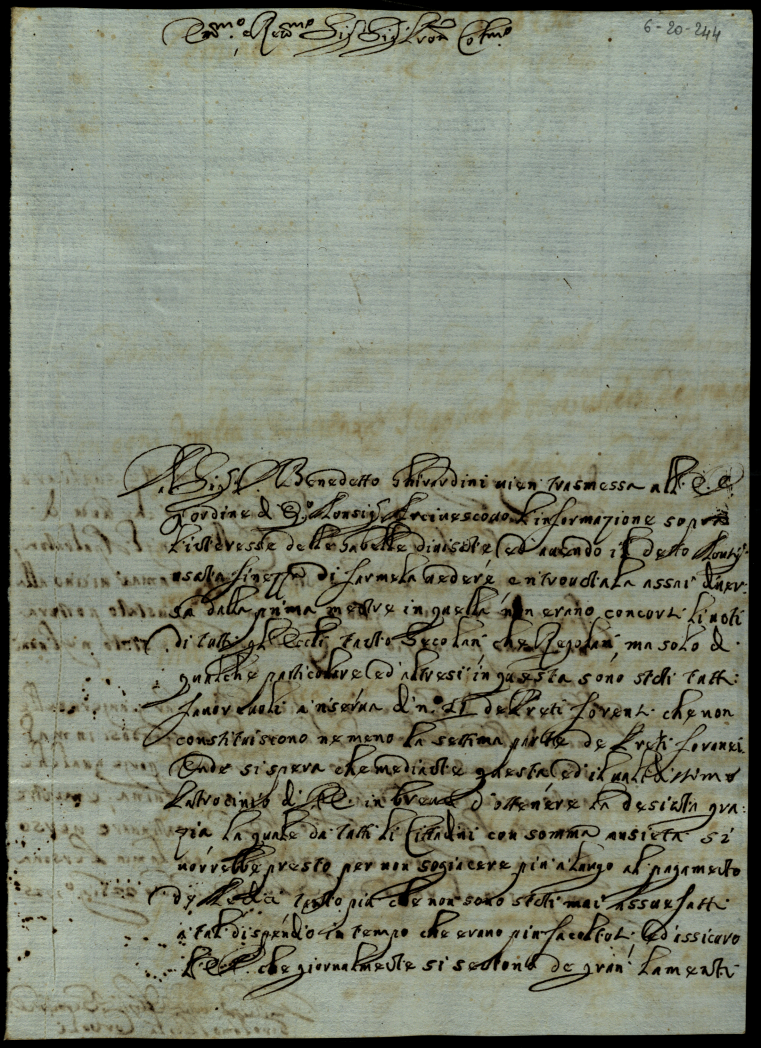 6-20-244
Em.mo e Rev.mo Sig.r Sig.r Pron Col.mo
Al Sig.r Benedetto Ghirardini vien trasmessa all' E. V.
d'ordine di Q.o Monsig.r Arcivescovo l'informazione sopra
l'interesse delle Gabelle divisate, ed avendo il detto Monsig.r
usata finezza di farmela vedere e ritrovatala assai diver-
sa dalla prima mentre in quella non erano concorsi li voti
di tutti gl'Eccl.i tanto Secolari che Regolari, ma solo di
qualche particolare, ed altresì in questa sono stati tutti
favorevoli a riserva di n.o 11 de Preti forensi che non
constituiscono ne meno la settima parte de Preti foranei
Onde si spera che mediante questa ed il validissimo
Patrocinio di V. E. in breve d'ottenere la desiata gra-
zia la quale da tutti li Cittadini con somma ansietà si
vorrebbe presto per non sogiacere più a lungo al pagamento
di tanto più che non sono stati mai assuefatti
a tal dispendio in tempo che erano più facoltosi, ed assicuro
l' E. V. che giornalmente si sentono de gran lamenti